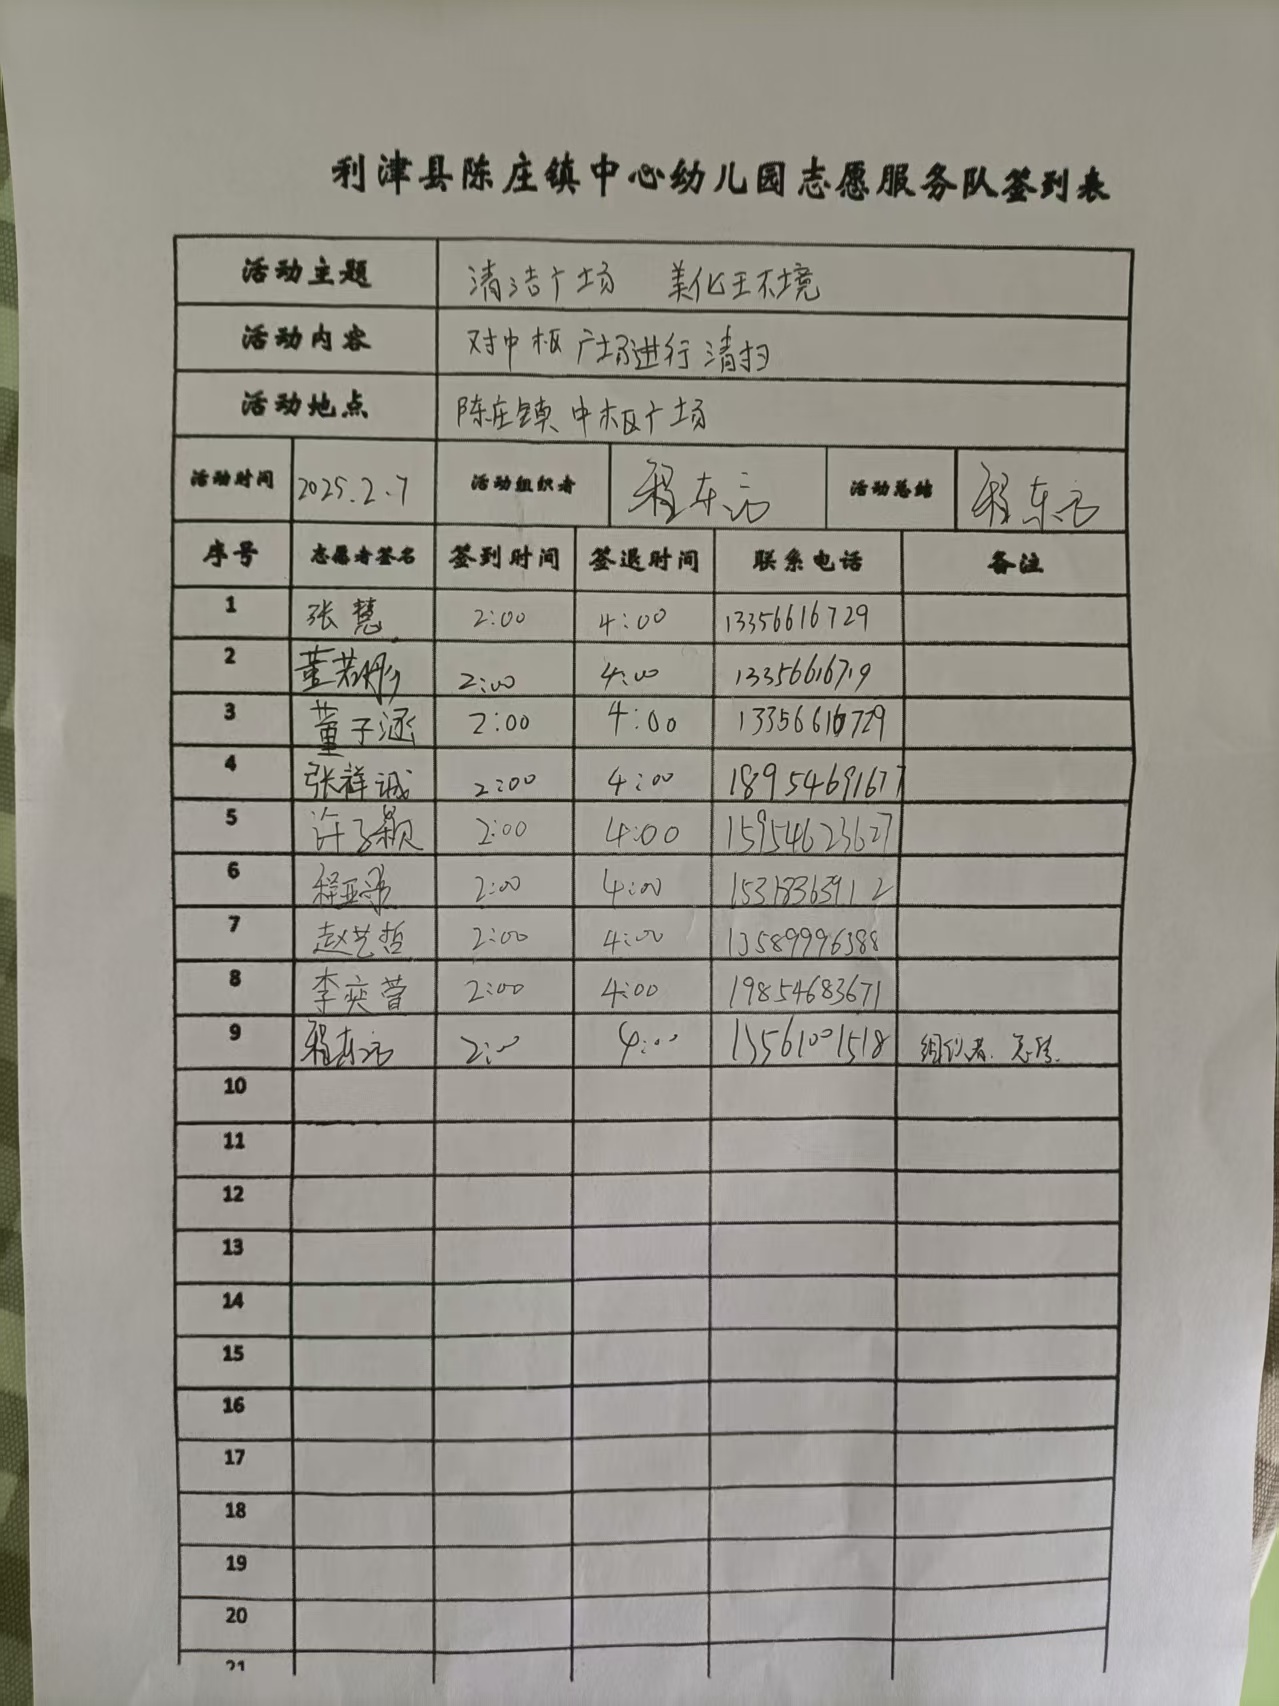 利津县陈庄镇中心幼儿园志愿服务队签到表
活动主题 清洁广场 美化环境
活动内容 对中枢广场进行清扫
活动地点 陈庄镇中枢广场
活动时间 2025.2.7 活动组织者 程东 活动总结 程东
序号 志愿者签名 签到时间 签退时间 联系电话 备注
1 张慧 2:00 4:00 13356616729
2 董若彤 2:00 4:00 13356616719
3 董子涵 2:00 4:00 13356616729
4 张祥诚 2:00 4:00 18954691677
5 许子颖 2:00 4:00 15954623627
6 程亚 2:00 4:00 15318363912
7 赵艺哲 2:00 4:00 13589996388
8 李奕萱 2:00 4:00 19854683671
9 程东 2:00 4:00 13561001518 组织者.
10
11
12
13
14
15
16
17
18
19
20
21